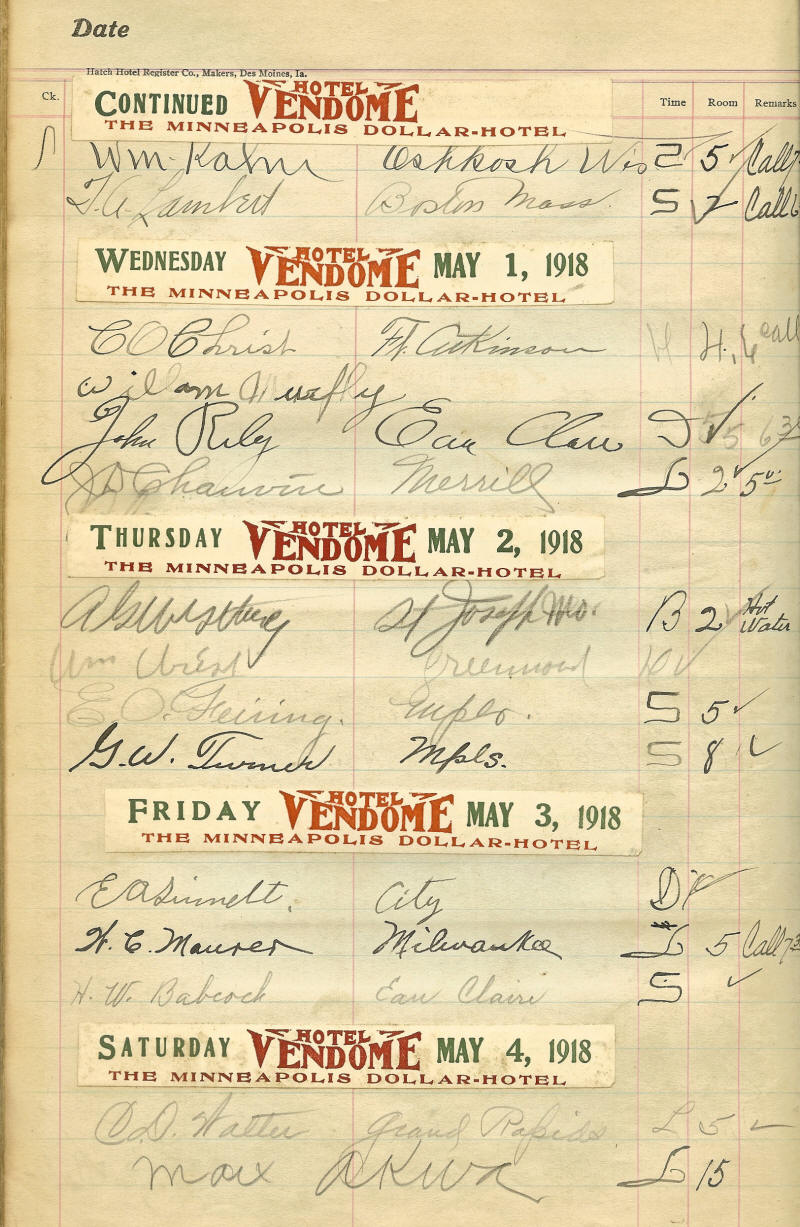 Date
Hatch Hotel Register Co., Makers, Des Moines, Ia.
Ck. Time Room Remarks
CONTINUED HOTEL VENDOME
THE MINNEAPOLIS DOLLAR-HOTEL
Wm. Kalm Oshkosh Wis 2 5 Call 7
T. A. Lambert Boston Mass. S 7 Call 6
WEDNESDAY HOTEL VENDOME MAY 1, 1918
THE MINNEAPOLIS DOLLAR-HOTEL
C O Christ Ft. Atkinson H H. call
William
John Rily Eau Clair D 5
Chauvin Merrill L 2 5
THURSDAY HOTEL VENDOME MAY 2, 1918
THE MINNEAPOLIS DOLLAR-HOTEL
A G St Joseph Mo. B 2 Hot Water
Wm Wriest Greenwood
E. O. Feiring. Mplo. S 5
G. W. Turner Mpls. S 8
FRIDAY HOTEL VENDOME MAY 3, 1918
THE MINNEAPOLIS DOLLAR-HOTEL
E A Sinnett. City D
H. C. Maurer Milwaukee L 5 Call 7 30
H. W. Babcock Eau Claire S
SATURDAY HOTEL VENDOME MAY 4, 1918
THE MINNEAPOLIS DOLLAR-HOTEL
C. D. Walter Grand Rapids L 5
Max L 15